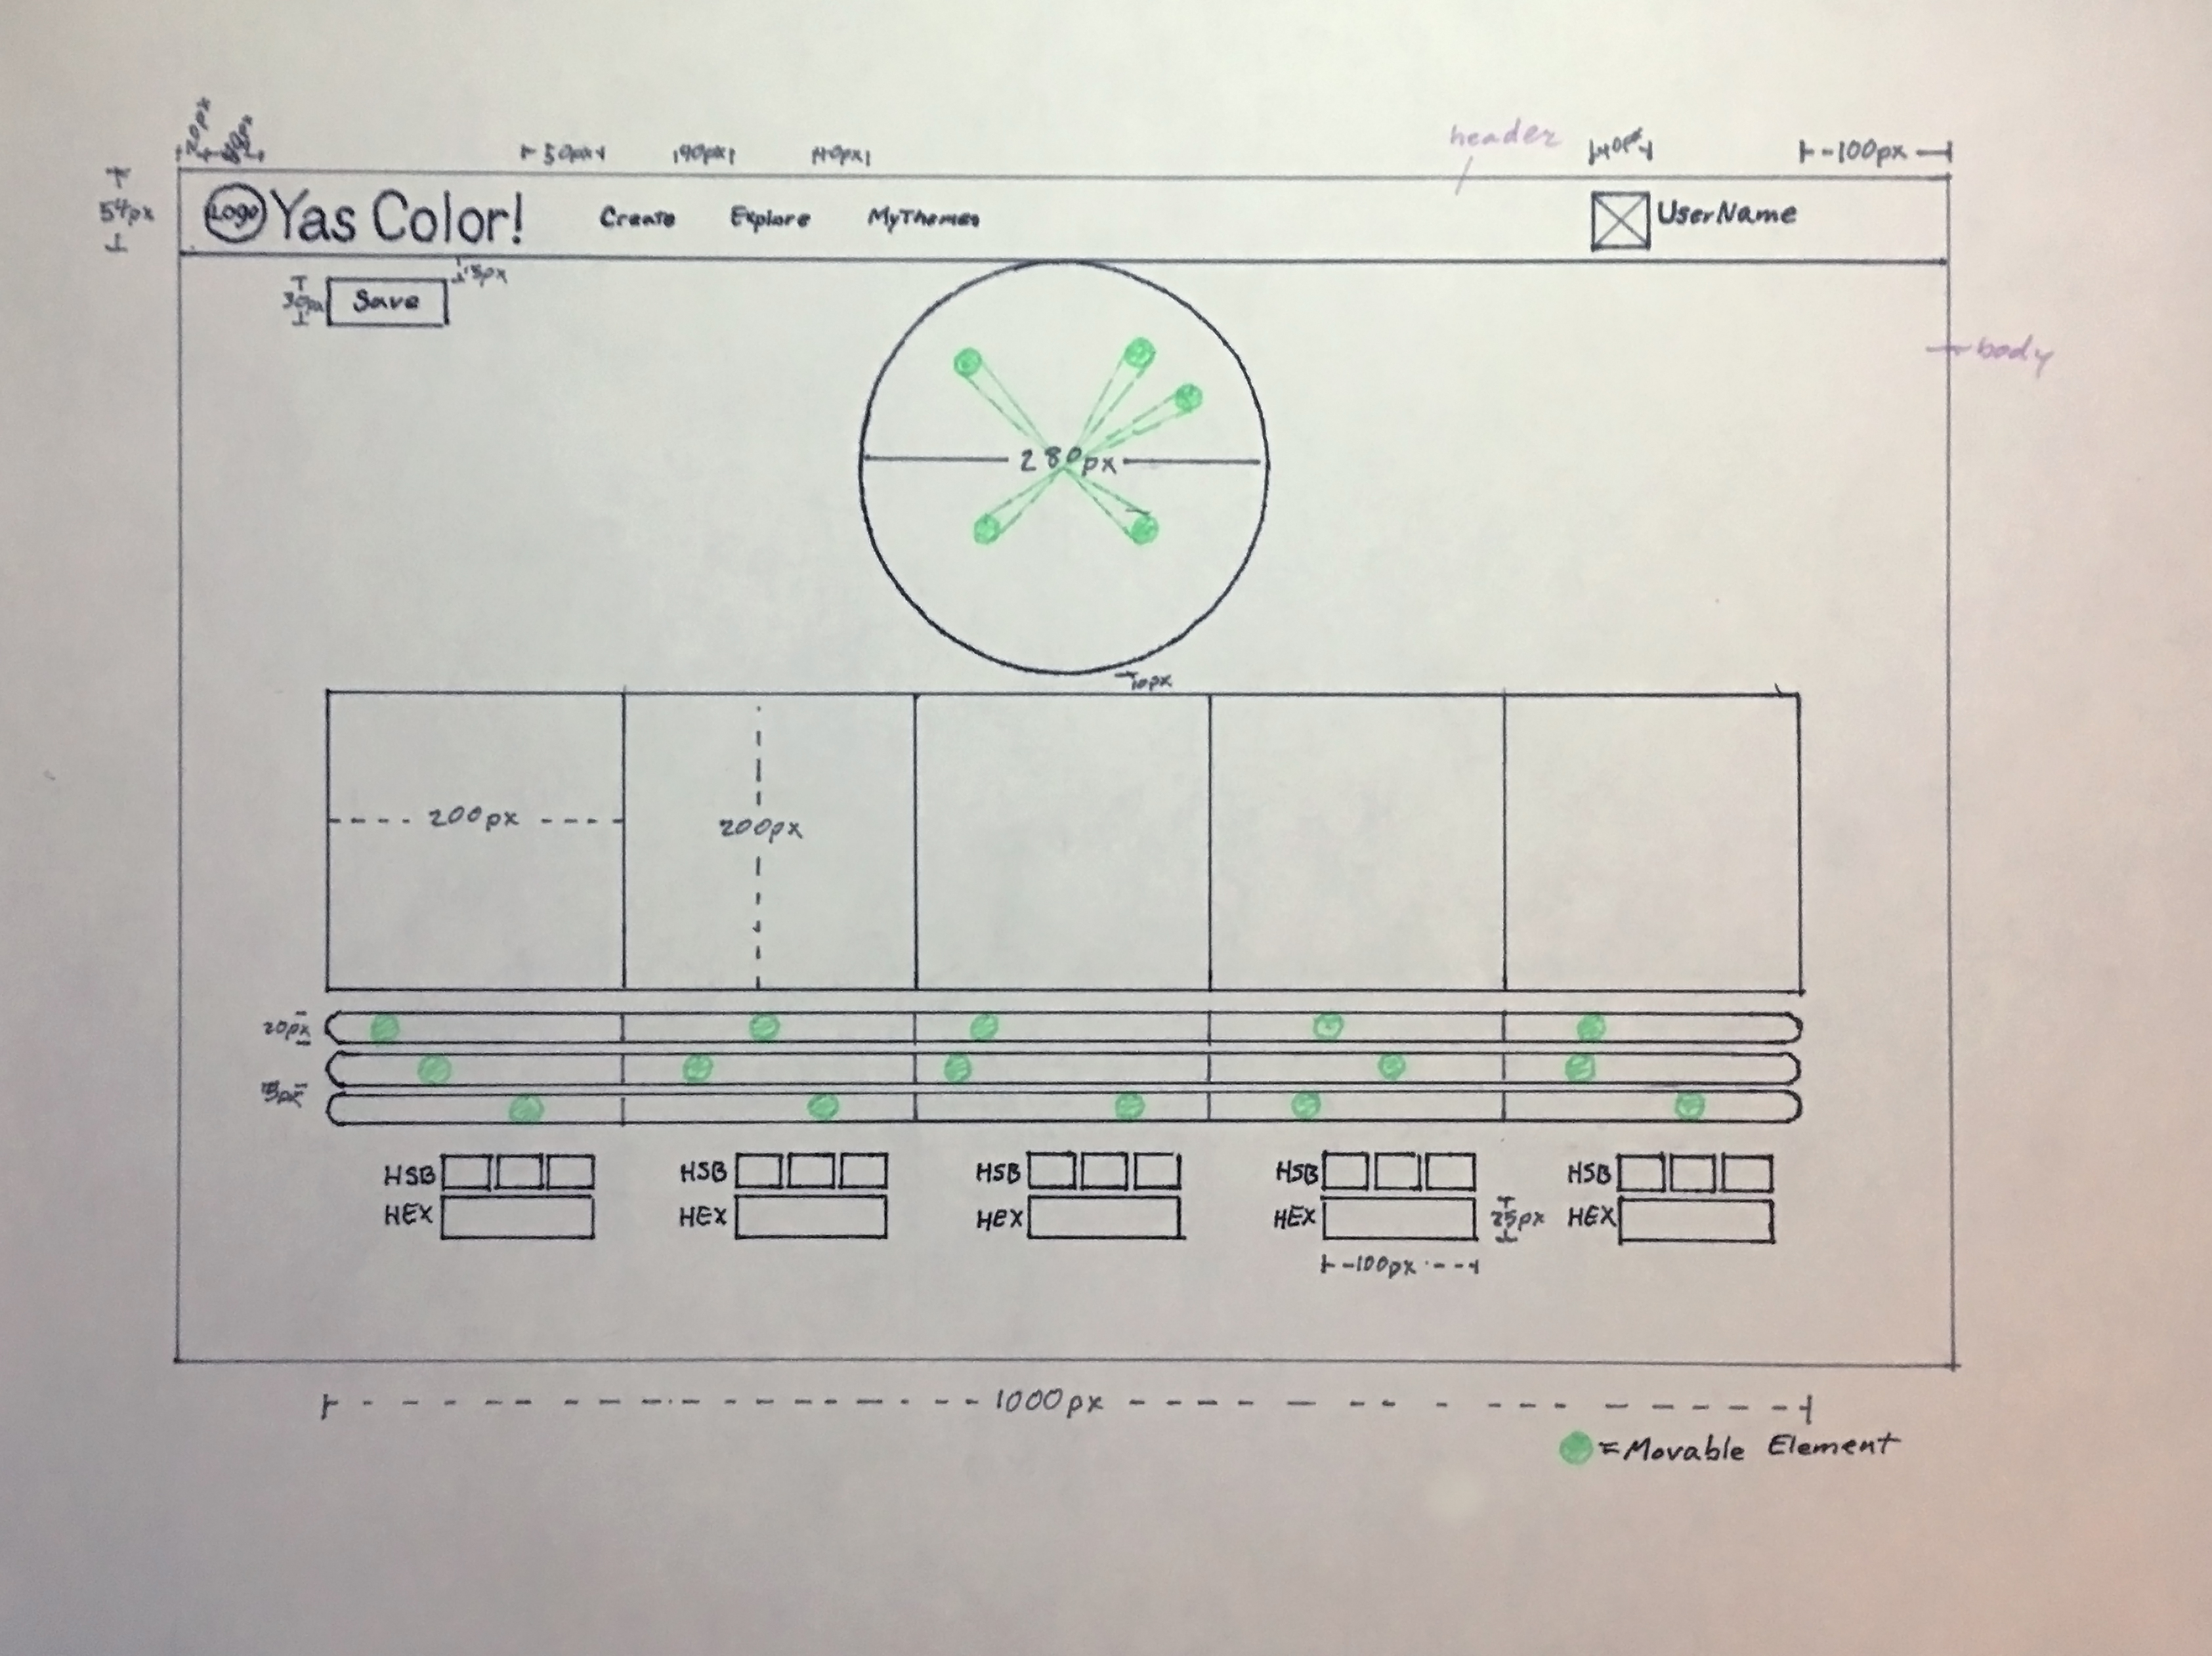 20px
50px
40px
header
40px
-100px
54px
Logo
Yas Color!
Create
Explore
MyThemes
UserName
15px
30px
Save
body
280px
10px
200px
200px
20px
15px
HSB
HSB
HSB
HSB
HSB
HEX
HEX
HEX
HEX
25px
HEX
-100px
1000px
=Movable Element